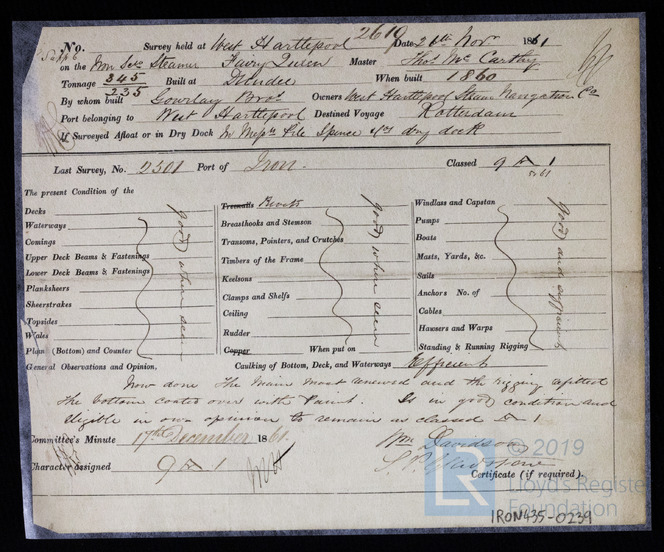 No. Survey held at West Hartlepool 2619 Date 26th Nov 1861
on the Iron Scr Steamer Fairy Queen Master Thos Mc Carthy
Tonnage 345 235 Built at Dundee When built 1860
By whom built Gourlay Bros Owners West Hartlepool Steam Navigation Co
Port belonging to West Hartlepool Destined Voyage Rotterdam
If Surveyed Afloat or in Dry Dock In Messrs Pile Spence &Co dry dock
Last Survey, No. 2501 Port of Iron. Classed 9 A 1
5.61
The present Condition of the
Decks
Waterways
Comings
Upper Deck Beams & Fastenings
Lower Deck Beams & Fastenings
Planksheers
Sheerstrakes
Topsides
Wales
Plank (Bottom) and Counter
good when seen
Treenails Rivets
Breasthooks and Stemson
Transoms, Pointers, and Crutches
Timbers of the Frame
Keelsons
Clamps and Shelfs
Ceiling
Rudder
Copper When put on
good when seen
Windlass and Capstan
Pumps
Boats
Masts, Yards, &c.
Sails
Anchors No. of
Cables
Hawsers and Warps
Standing & Running Rigging
good and efficient
General Observations and Opinion, Caulking of Bottom, Deck, and Waterways Efficient
Now done The Main mast renewed and the rigging refitted
the bottom coated over with Paint. Is in good condition and
eligible in our opinion to remain as classed A 1
Committee's Minute 17th December 1861.
Wm Davidson
Character assigned 9 A 1
Certificate (if required).
© 2019
LR Lloyd's Register
Foundation
IRON435-0239